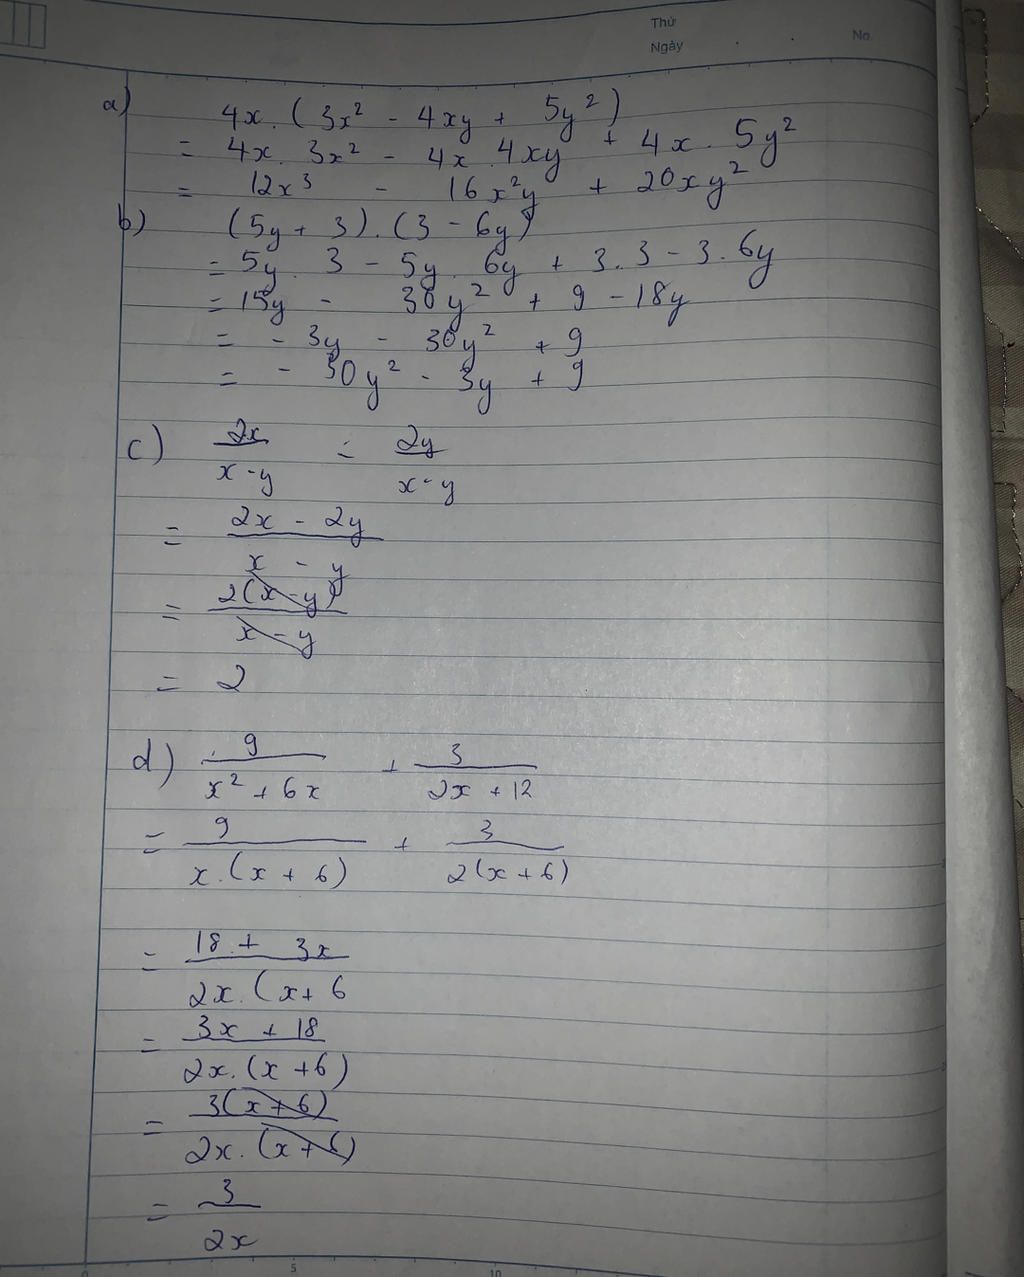 Thứ
Ngày
No.
a) 4x. (3x² - 4xy + 5y²)
= 4x. 3x² - 4x. 4xy + 4x. 5y²
= 12x³ - 16x²y + 20xy²
b) (5y + 3). (3 - 6y)
= 5y. 3 - 5y. 6y + 3. 3 - 3. 6y
= 15y - 30y² + 9 - 18y
= - 3y - 30y² + 9
= - 30y² - 3y + 9
c) 2x/(x - y) = 2y/(x - y)
= (2x - 2y)/(x - y)
= 2(x - y)/(x - y)
= 2
d) 9/(x² + 6x) + 3/(2x + 12)
= 9/(x. (x + 6)) + 3/(2(x + 6))
= (18 + 3x)/(2x. (x + 6
= (3x + 18)/(2x. (x + 6))
= 3(x + 6)/(2x. (x + 6))
= 3/(2x)
0 5 10